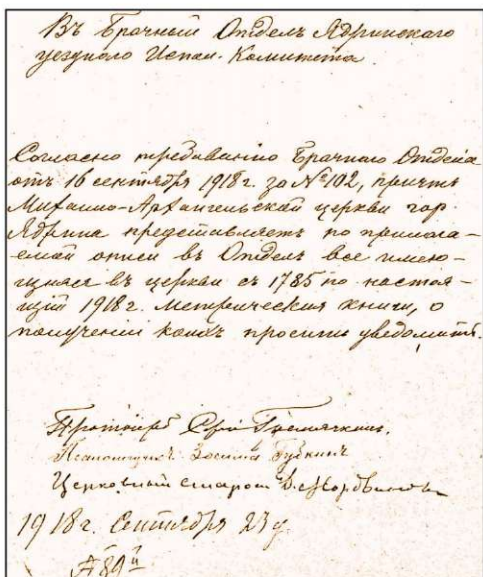 Въ Брачный Отделъ Ядринскаго
уезднаго Испол. Комитета.
Согласно требованію Брачнаго Отдела
отъ 16 сентября 1918 г. за № 102, причтъ
Михаило-Архангельской церкви гор.
Ядрина представляетъ по прилага-
емой описи въ Отделъ все имею-
щіяся въ церкви съ 1785 по настоя-
щій 1918 г. метрическія книги, о
полученіи коихъ проситъ уведомить.
Протоіерей
Псаломщикъ Зосима Губкинъ
Церковный староста
1918 г. Сентября 23 д.
№ 89й